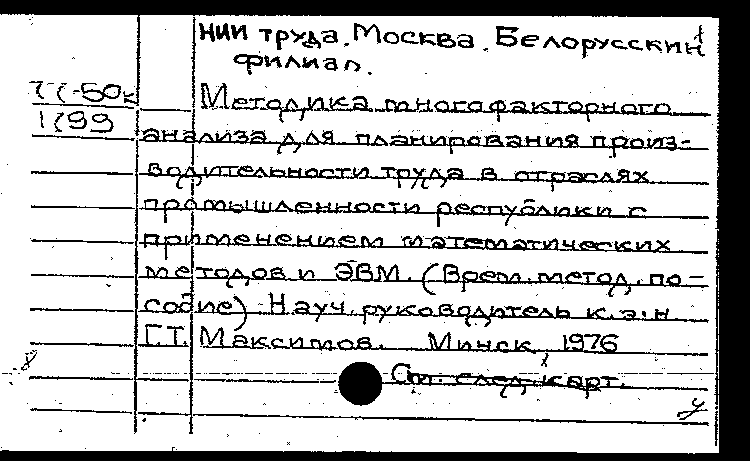 НИИ труда. Москва. Белорусский
филиал.
77-50к
1799
Методика многофакторного
анализа для планирования произ-
водительности труда в отраслях
промышленности республики с
применением математических
методов и ЭВМ. (Врем. метод. по-
собие). Науч. руководитель к.э.н.
Г.Т. Максимов. Минск, 1976
См. след. карт.